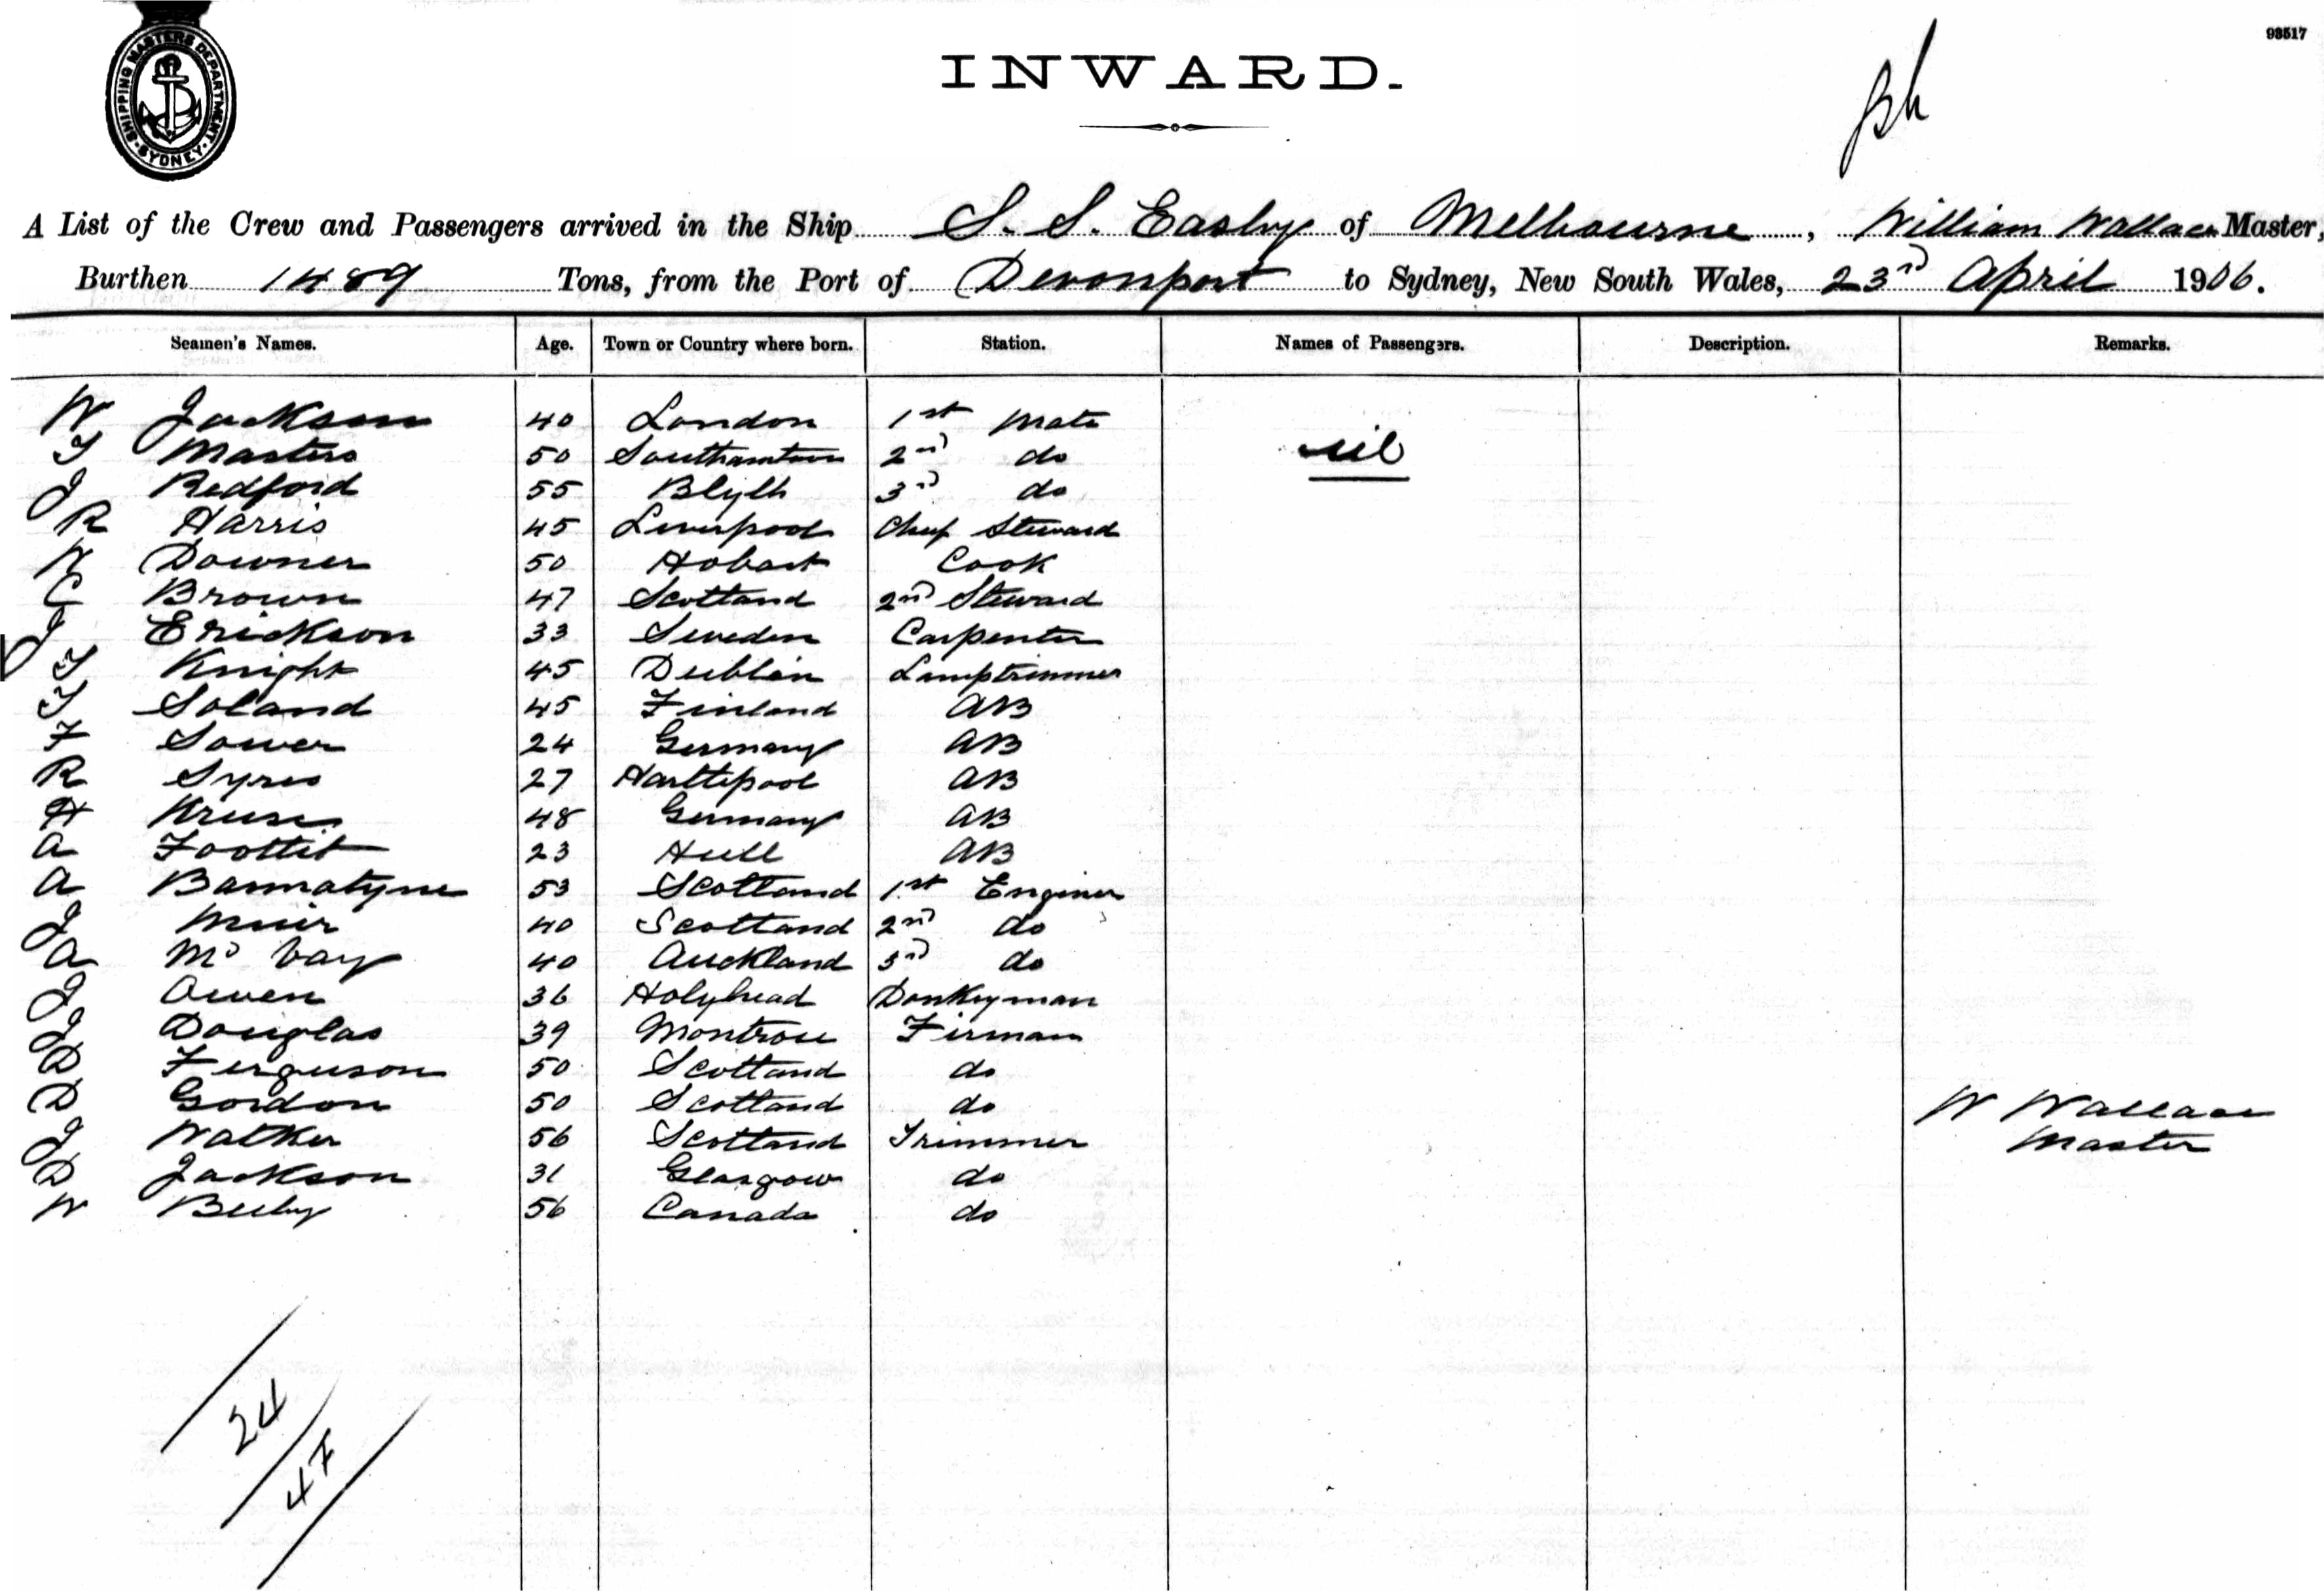 SHIPPING MASTERS DEPARTMENT
SYDNEY
93517
INWARD.
A List of the Crew and Passengers arrived in the Ship S. S. Easby of Melbourne, William Wallace Master,
Burthen 1489 Tons, from the Port of Devonport to Sydney, New South Wales, 23rd April 1906.
Seamen's Names. Age. Town or Country where born. Station. Names of Passengers. Description. Remarks.
W Jackson 40 London 1st Mate
T Masters 50 Southamton 2nd do nil
J Redford 55 Blyth 3rd do
R Harris 45 Liverpool Chief Steward
W Downer 50 Hobart Cook
C Brown 47 Scotland 2nd Steward
J Erickson 33 Sweden Carpenter
T Knight 45 Dublin Lamptrimmer
T Soland 45 Finland AB
F Sower 24 Germany AB
R Syres 27 Hartlepool AB
H Kruse 48 Germany AB
A Foottit 23 Hull AB
A Bannatyne 53 Scotland 1st Enginer
J Muir 40 Scotland 2nd do
A Mc Vay 40 Auckland 3rd do
J Owen 36 Holyhead Donkeyman
J Douglas 39 Montrose Firman
D Ferguson 50 Scotland do
D Gordon 50 Scotland do W Wallace
J Walker 56 Scotland Trimmer Master
D Jackson 31 Glasgow do
W Beeby 56 Canada do
24
47